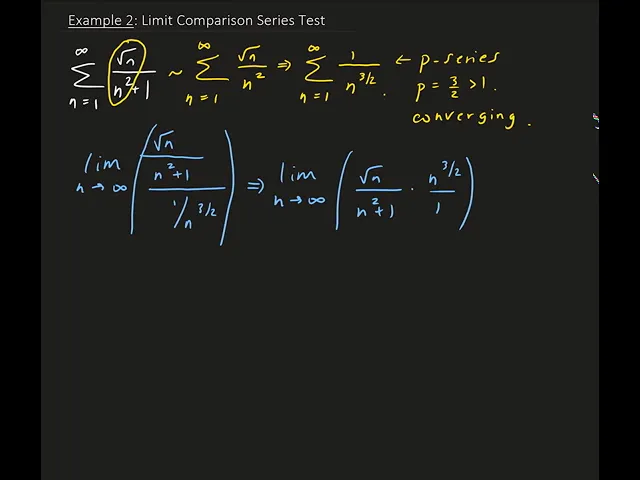 Example 2: Limit Comparison Series Test
∞ ∑ n=1 √n/(n²+1) ~ ∞ ∑ n=1 √n/n² ⇒ ∞ ∑ n=1 1/n^(3/2) . ← p-series
p = 3/2 > 1.
converging.
lim n→∞ ( (√n/(n²+1)) / (1/n^(3/2)) ) ⇒ lim n→∞ ( √n/(n²+1) · n^(3/2)/1 )